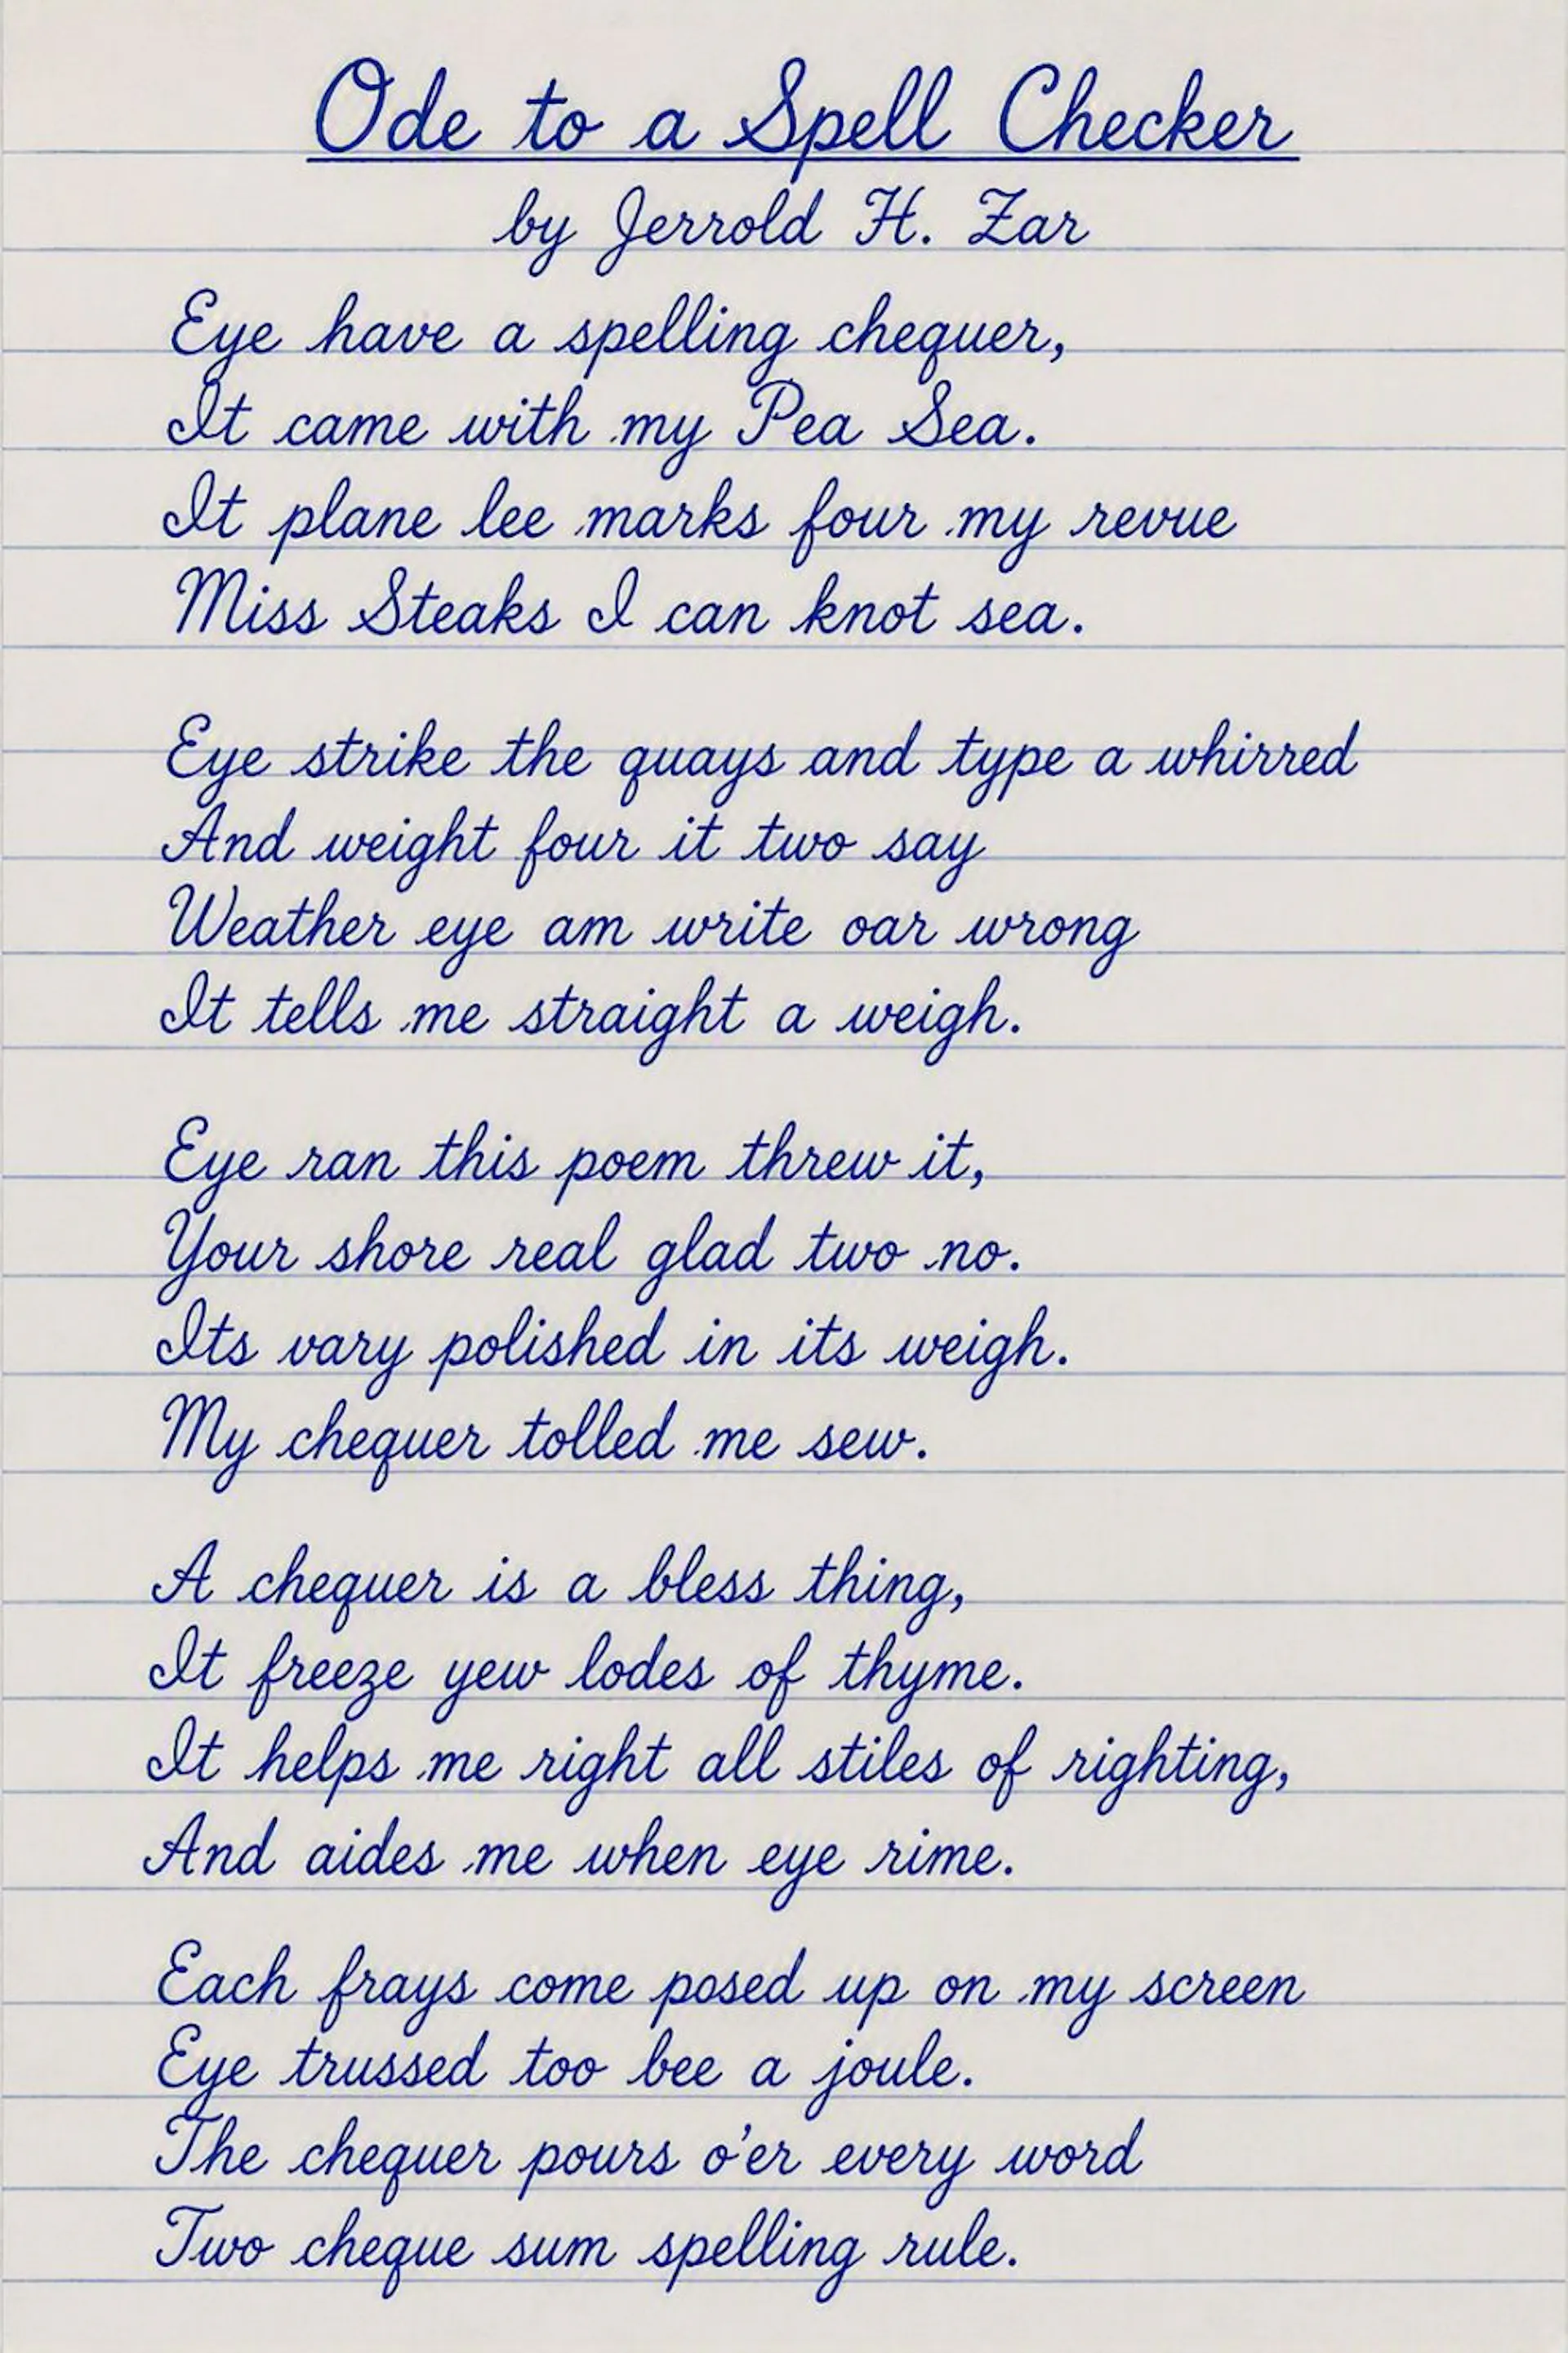 Ode to a Spell Checker
by Jerrold H. Zar
Eye have a spelling chequer,
It came with my Pea Sea.
It plane lee marks four my revue
Miss Steaks I can knot sea.
Eye strike the quays and type a whirred
And weight four it two say
Weather eye am write oar wrong
It tells me straight a weigh.
Eye ran this poem threw it,
Your shore real glad two no.
Its vary polished in its weigh.
My chequer tolled me sew.
A chequer is a bless thing,
It freeze yew lodes of thyme.
It helps me right all stiles of righting,
And aides me when eye rime.
Each frays come posed up on my screen
Eye trussed too bee a joule.
The chequer pours o'er every word
Two cheque sum spelling rule.